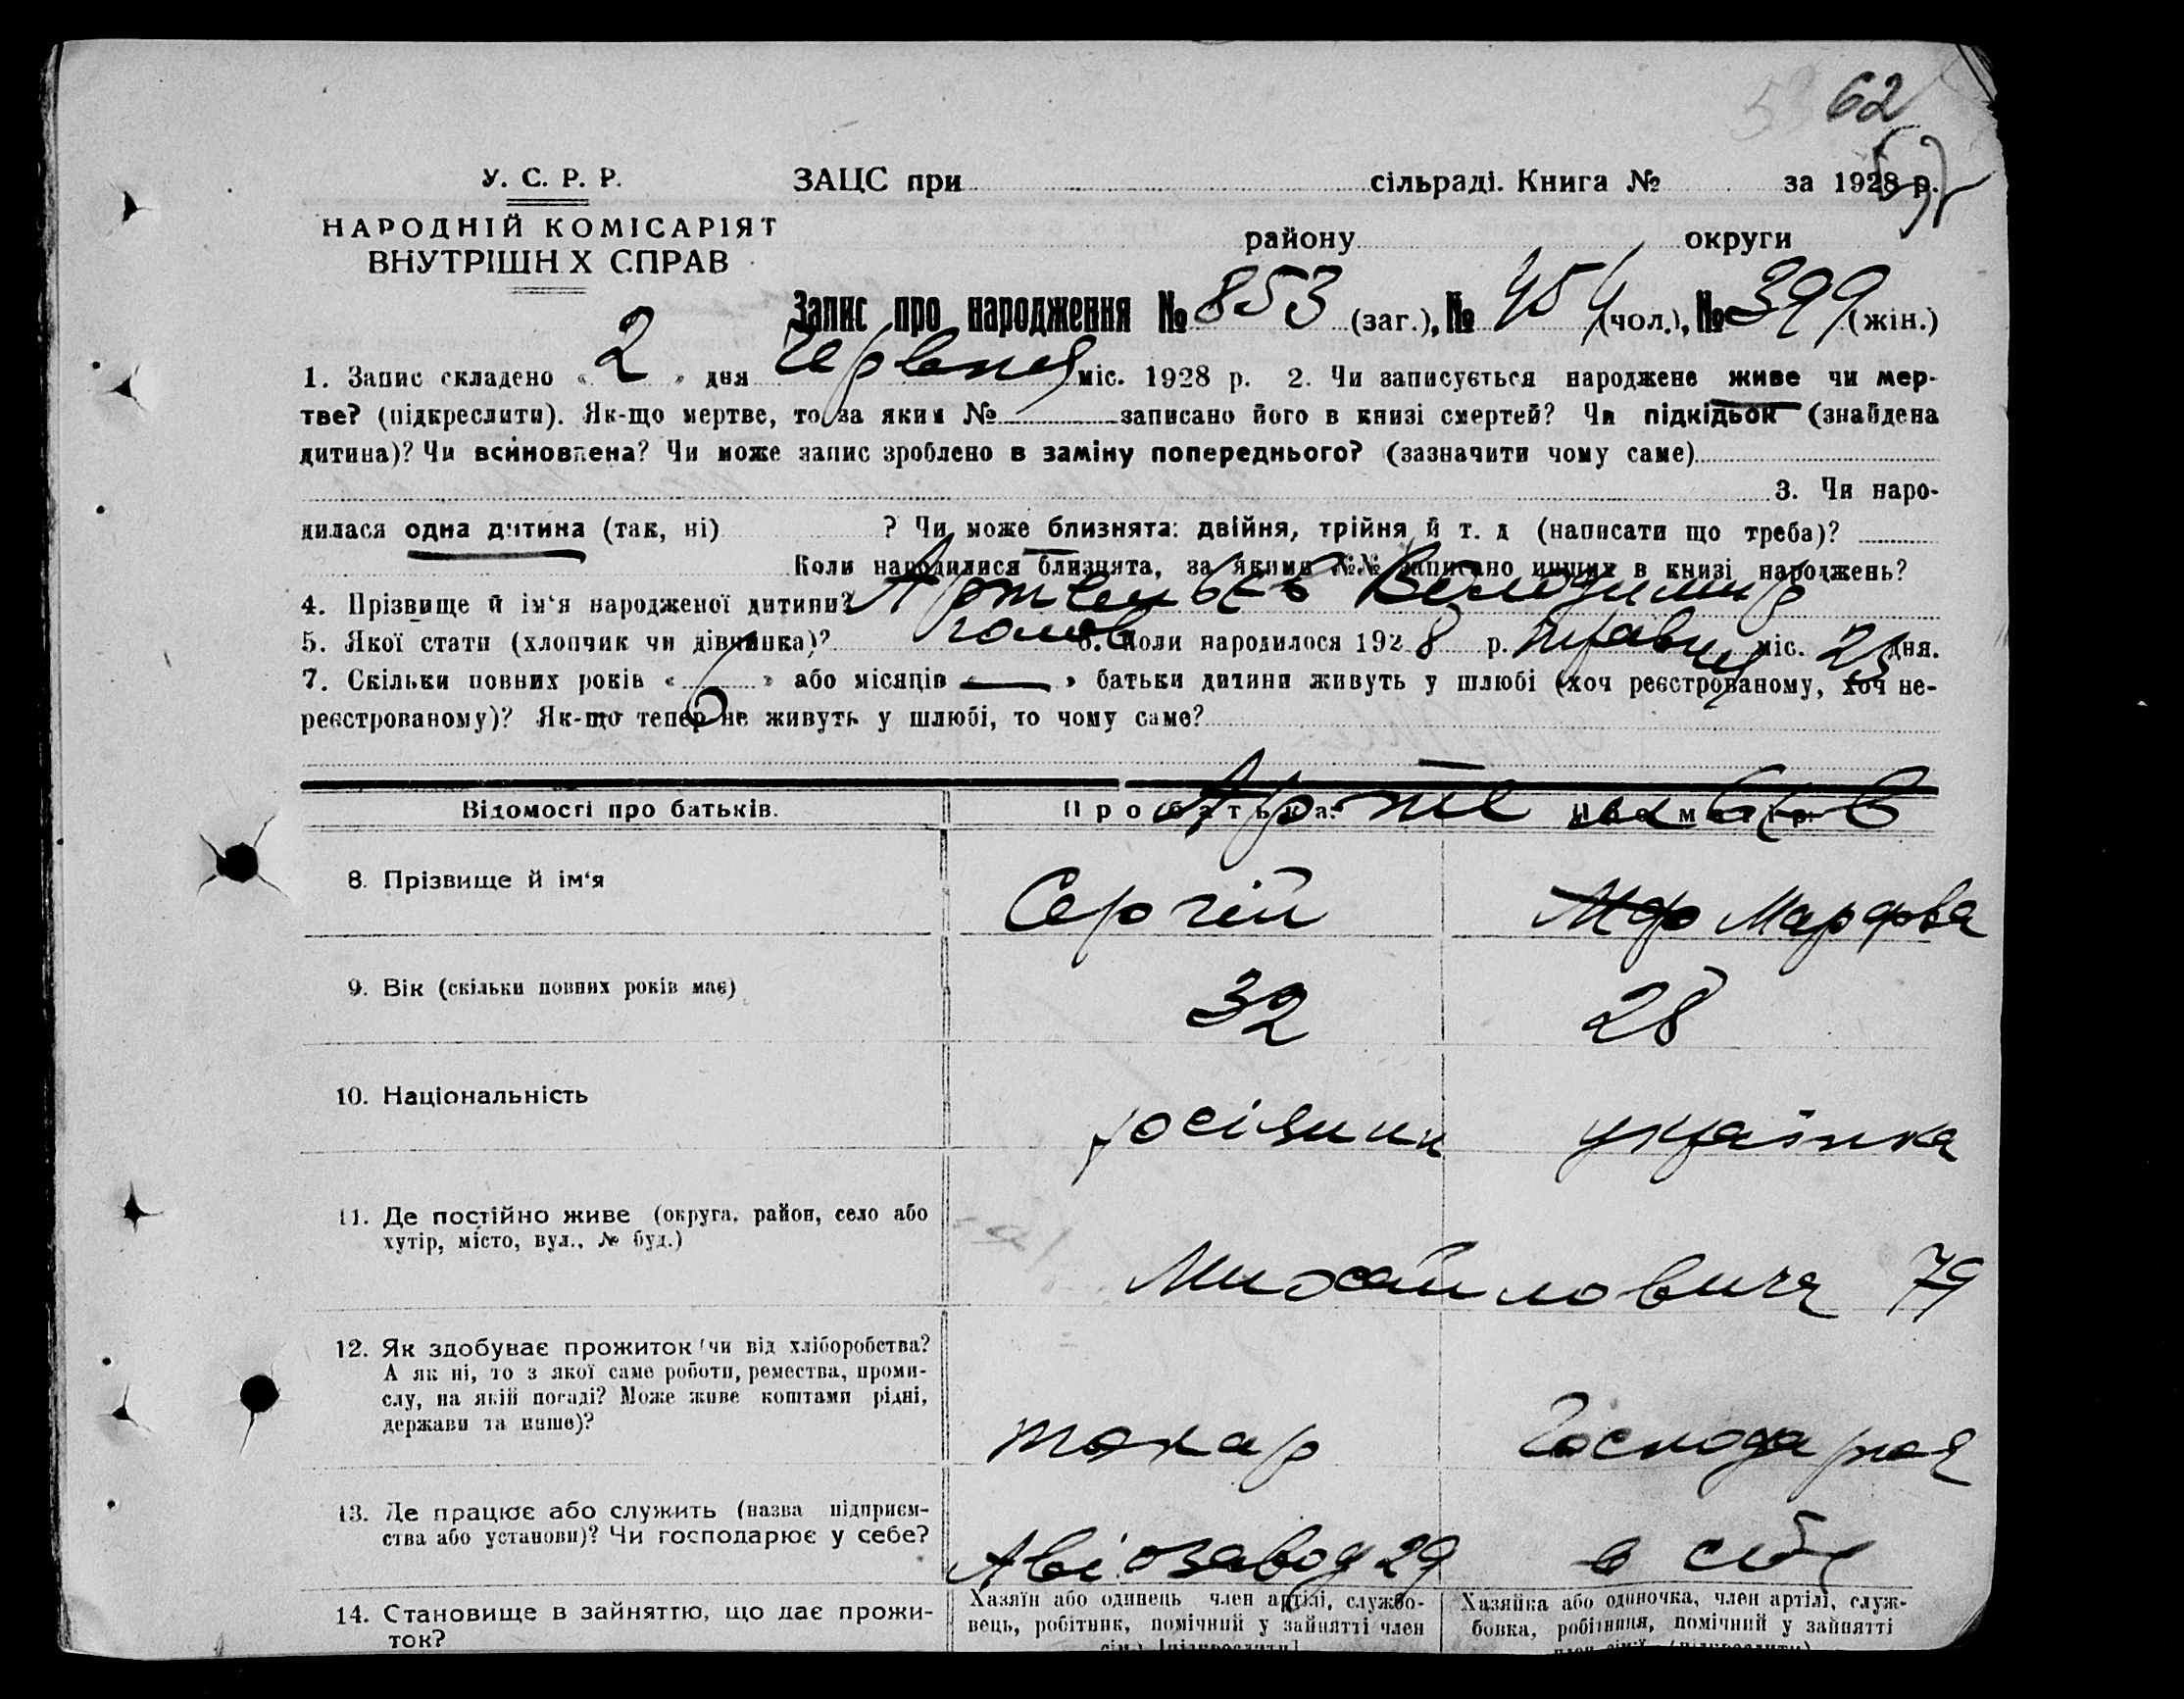 62
У. С. Р. Р.
ЗАЦС при сільраді. Книга № за 1928 р.
НАРОДНІЙ КОМІСАРІЯТ
ВНУТРІШН Х СПРАВ
району округи
Запис про народження № 853 (заг.), № 454 (чол.), № 399 (жін.)
1. Запис складено « 2 » дня Червня міс. 1928 р. 2. Чи записується народжене живе чи мер-
тве? (підкреслити). Як-що мертве, то за яким № записано його в книзі смертей? Чи підкідьок (знайдена
дитина)? Чи всиновлена? Чи може запис зроблено в заміну попереднього? (зазначити чому саме)
3. Чи наро-
дилася одна дитина (так, ні) ? Чи може близнята: двійня, трійня й т. д (написати що треба)?
Коли народилися близнята, за якими №№ записано инших в книзі народжень?
4. Прізвище й ім'я народженої дитини? Артемьєв Володимир
5. Якої стати (хлопчик чи дівчинка)? чолов 6. Коли народилося 1928 р. травня міс. 25 дня.
7. Скільки повних років « 6 » або місяців « — » батьки дитини живуть у шлюбі (хоч реєстрованому, хоч не-
реєстрованому)? Як-що тепер не живуть у шлюбі, то чому саме?
Відомості про батьків. Про батька. Про матір.
Артемьєв
8. Прізвище й ім'я Сергій Марфва
9. Вік (скільки повних років має) 32 28
10. Національність росіянин українка
11. Де постійно живе (округа, район, село або
хутір, місто, вул., № буд.)
Михайловича 79
12. Як здобуває прожиток (чи від хліборобства?
А як ні, то з якої саме роботи, ремества, проми-
слу, на якій посаді? Може живе коштами рідні,
держави та инше)?
токар Господарюя
13. Де працює або служить (назва підприєм-
ства або установи)? Чи господарює у себе?
Авіозавод 29 в себе
14. Становище в зайняттю, що дає прожи-
ток?
Хазяїн або одинець член артілі, службо-
вець, робітник, помічний у зайнятті член
Хазяйка або одиночка, член артілі, служ-
бовка, робітниця, помічний у зайнятті